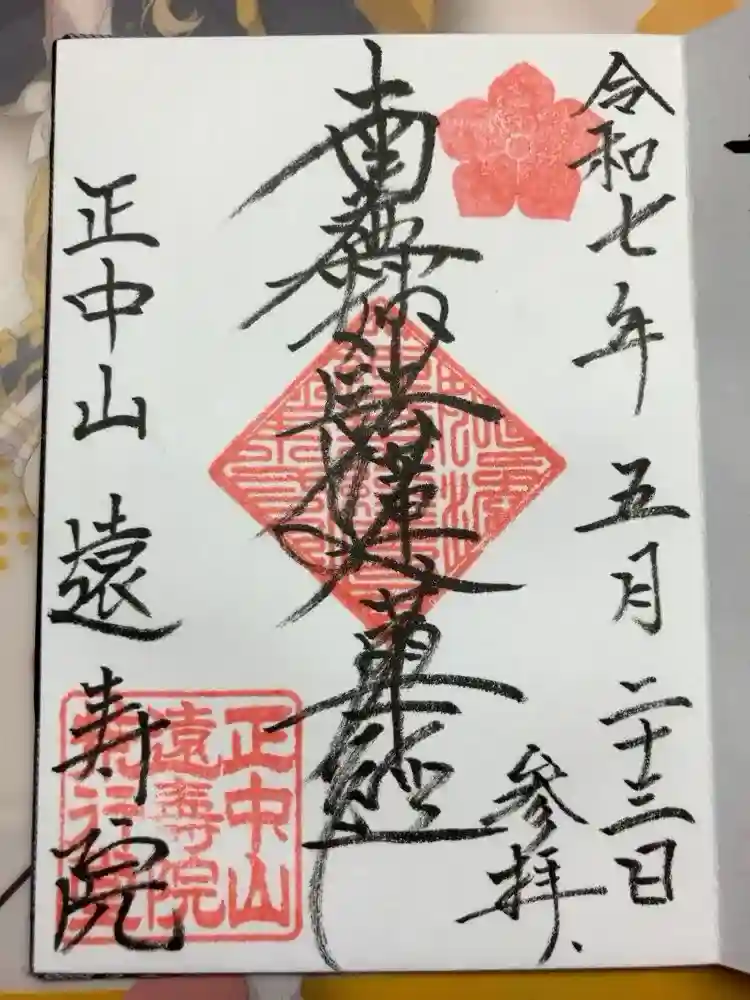 令和七年五月二十三日
参拝、
南無妙法蓮華経
正中山 遠寿院
正中山
遠壽院
荒行堂